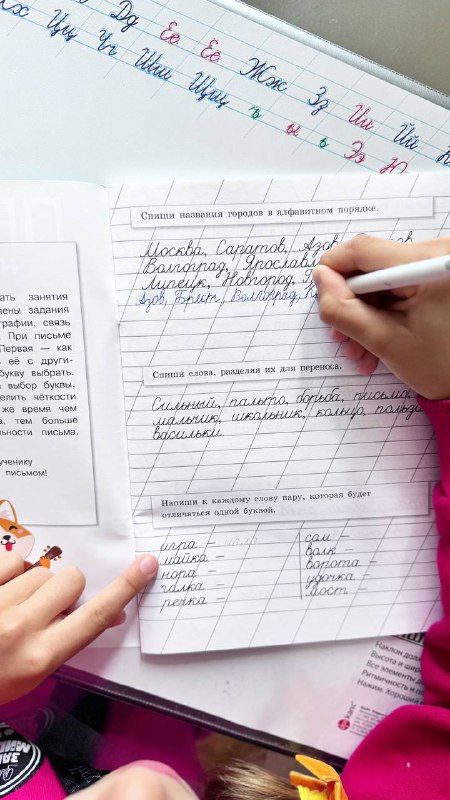 Дд Ее Ее Жж Зз Ии Йй
Цц Чч Шш Щщ ъ ы ь Ээ
Спиши названия городов в алфавитном порядке.
Москва, Саратов, Азов,
Волгоград,
Липецк, Новгород,
Азов, Волгоград,
Спиши слова, разделяя их для переноса.
Сильный, пальто, борьба, письмо,
мальчик, школьник, кольцо,
васильки.
Напиши к каждому слову пару, которая будет
отличаться одной буквой.
игра –
майка –
нора –
галка –
речка –
сом –
волк –
ворота –
удочка –
мост –
занятия
задания
графии, связь
При письме
Первая — как
её с други-
букву выбрать.
выбор буквы,
чёткости
же время чем
тем больше
письма,
ученику
письмом!
Наклон
Высота и
Все элементы
Ритмичность и
Нажим. Хороший